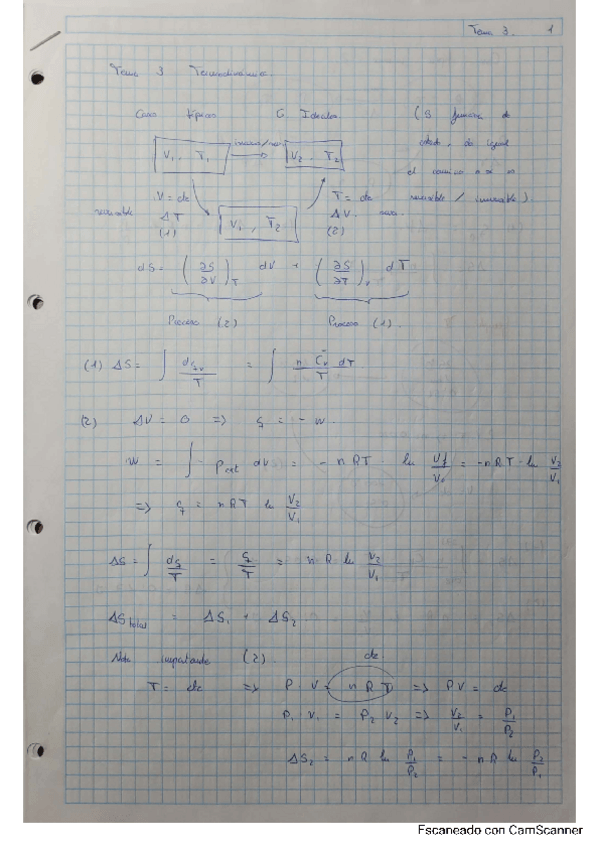 Tema 3. 1
Tema 3 Termodinámica
Casos típicos G Ideales (S función de
V₁, T₁ → V₂, T₂ estado, da igual
el camino
V = cte T = cte reversible / irreversible).
reversible ΔT V₁, T₂ ΔV. rev.
(1) (2)
dS = (∂S/∂V)_T dV + (∂S/∂T)_V dT
Proceso (2) Proceso (1).
(1) ΔS = ∫ dq_v/T = ∫ n C̄v dT/T
(2) ΔU = 0 => q = -w.
W = ∫ - Pext dV = - nRT · ln Vf/V₀ = -nRT · ln V₂/V₁
=> q = nRT ln V₂/V₁
ΔS = ∫ dq/T = q/T = n R ln V₂/V₁
ΔS total = ΔS₁ + ΔS₂
Nota importante (2). cte.
T = cte => P · V = nRT => PV = cte
P₁ V₁ = P₂ V₂ => V₂/V₁ = P₁/P₂
ΔS₂ = nR ln P₁/P₂ = - nR ln P₂/P₁
Escaneado con CamScanner